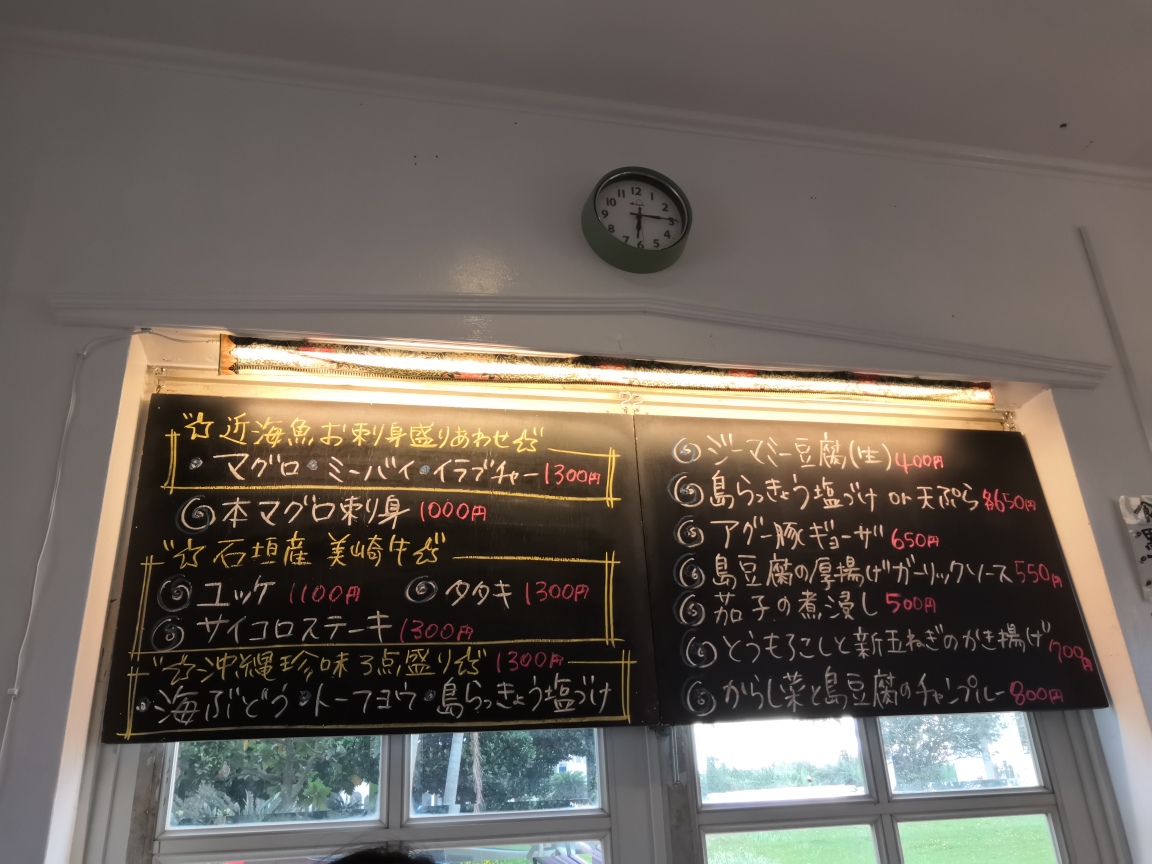 ☆近海魚お刺身盛りあわせ☆
・マグロ・ミーバイ・イラブチャー 1300円
本マグロ刺身 1000円
☆石垣産 美崎牛☆
ユッケ 1100円 タタキ 1300円
サイコロステーキ 1300円
☆沖縄珍味3点盛り☆ 1300円
・海ぶどう・トーフヨウ・島らっきょう塩づけ
ジーマミー豆腐(生) 400円
島らっきょう塩づけ or 天ぷら 各650円
アグー豚ギョーザ 650円
島豆腐の厚揚げガーリックソース 550円
茄子の煮浸し 500円
とうもろこしと新玉ねぎのかき揚げ 700円
からし菜と島豆腐のチャンプルー 800円
12 1 2 3 4 5 6 7 8 9 10 11